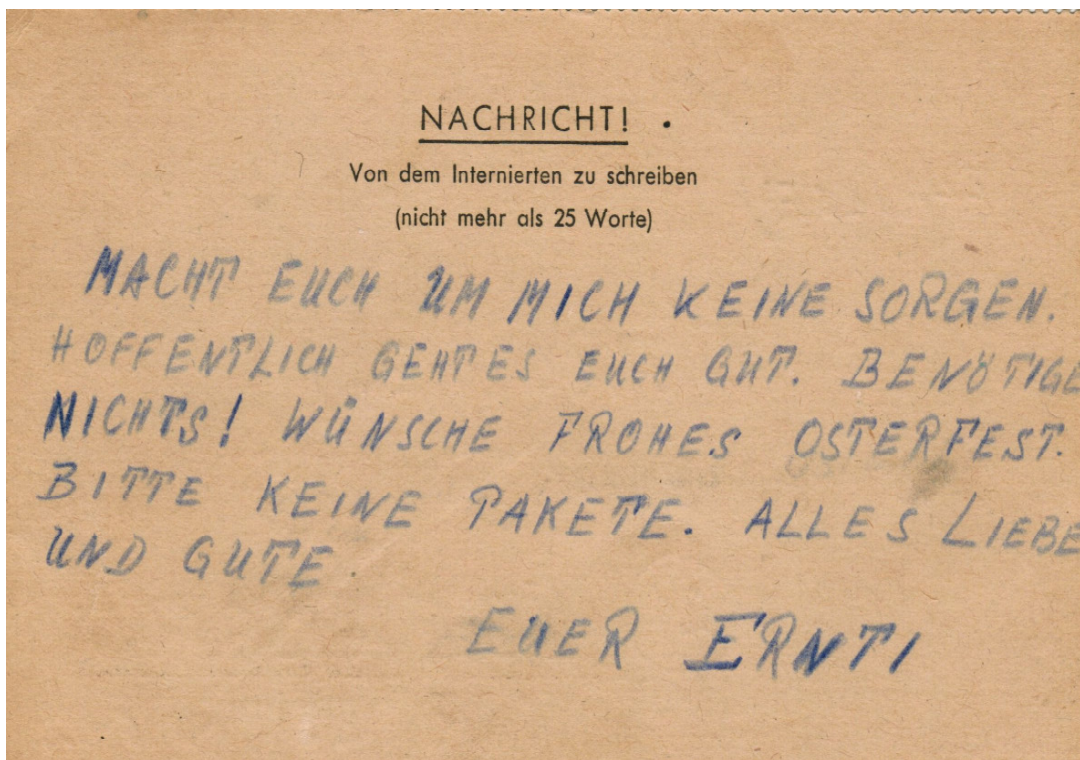 NACHRICHT!
Von dem Internierten zu schreiben
(nicht mehr als 25 Worte)
MACHT EUCH UM MICH KEINE SORGEN.
HOFFENTLICH GEHT ES EUCH GUT. BENÖTIGE
NICHTS! WÜNSCHE FROHES OSTERFEST.
BITTE KEINE PAKETE. ALLES LIEBE
UND GUTE.
EUER ERNTI